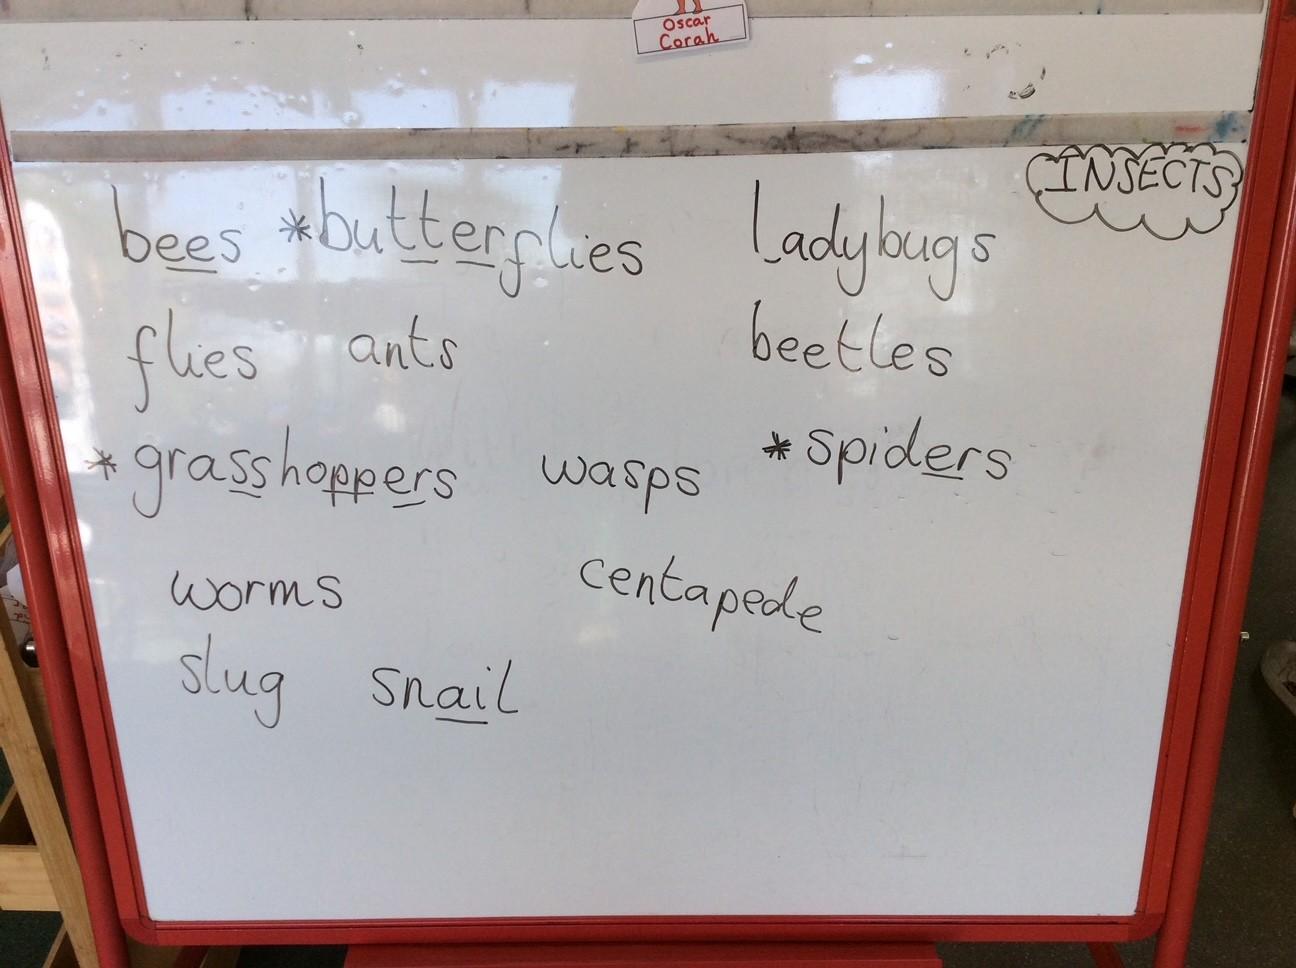 Oscar
Corah
INSECTS
bees *butterflies ladybugs
flies ants beetles
*grasshoppers wasps *spiders
worms centapede
slug snail